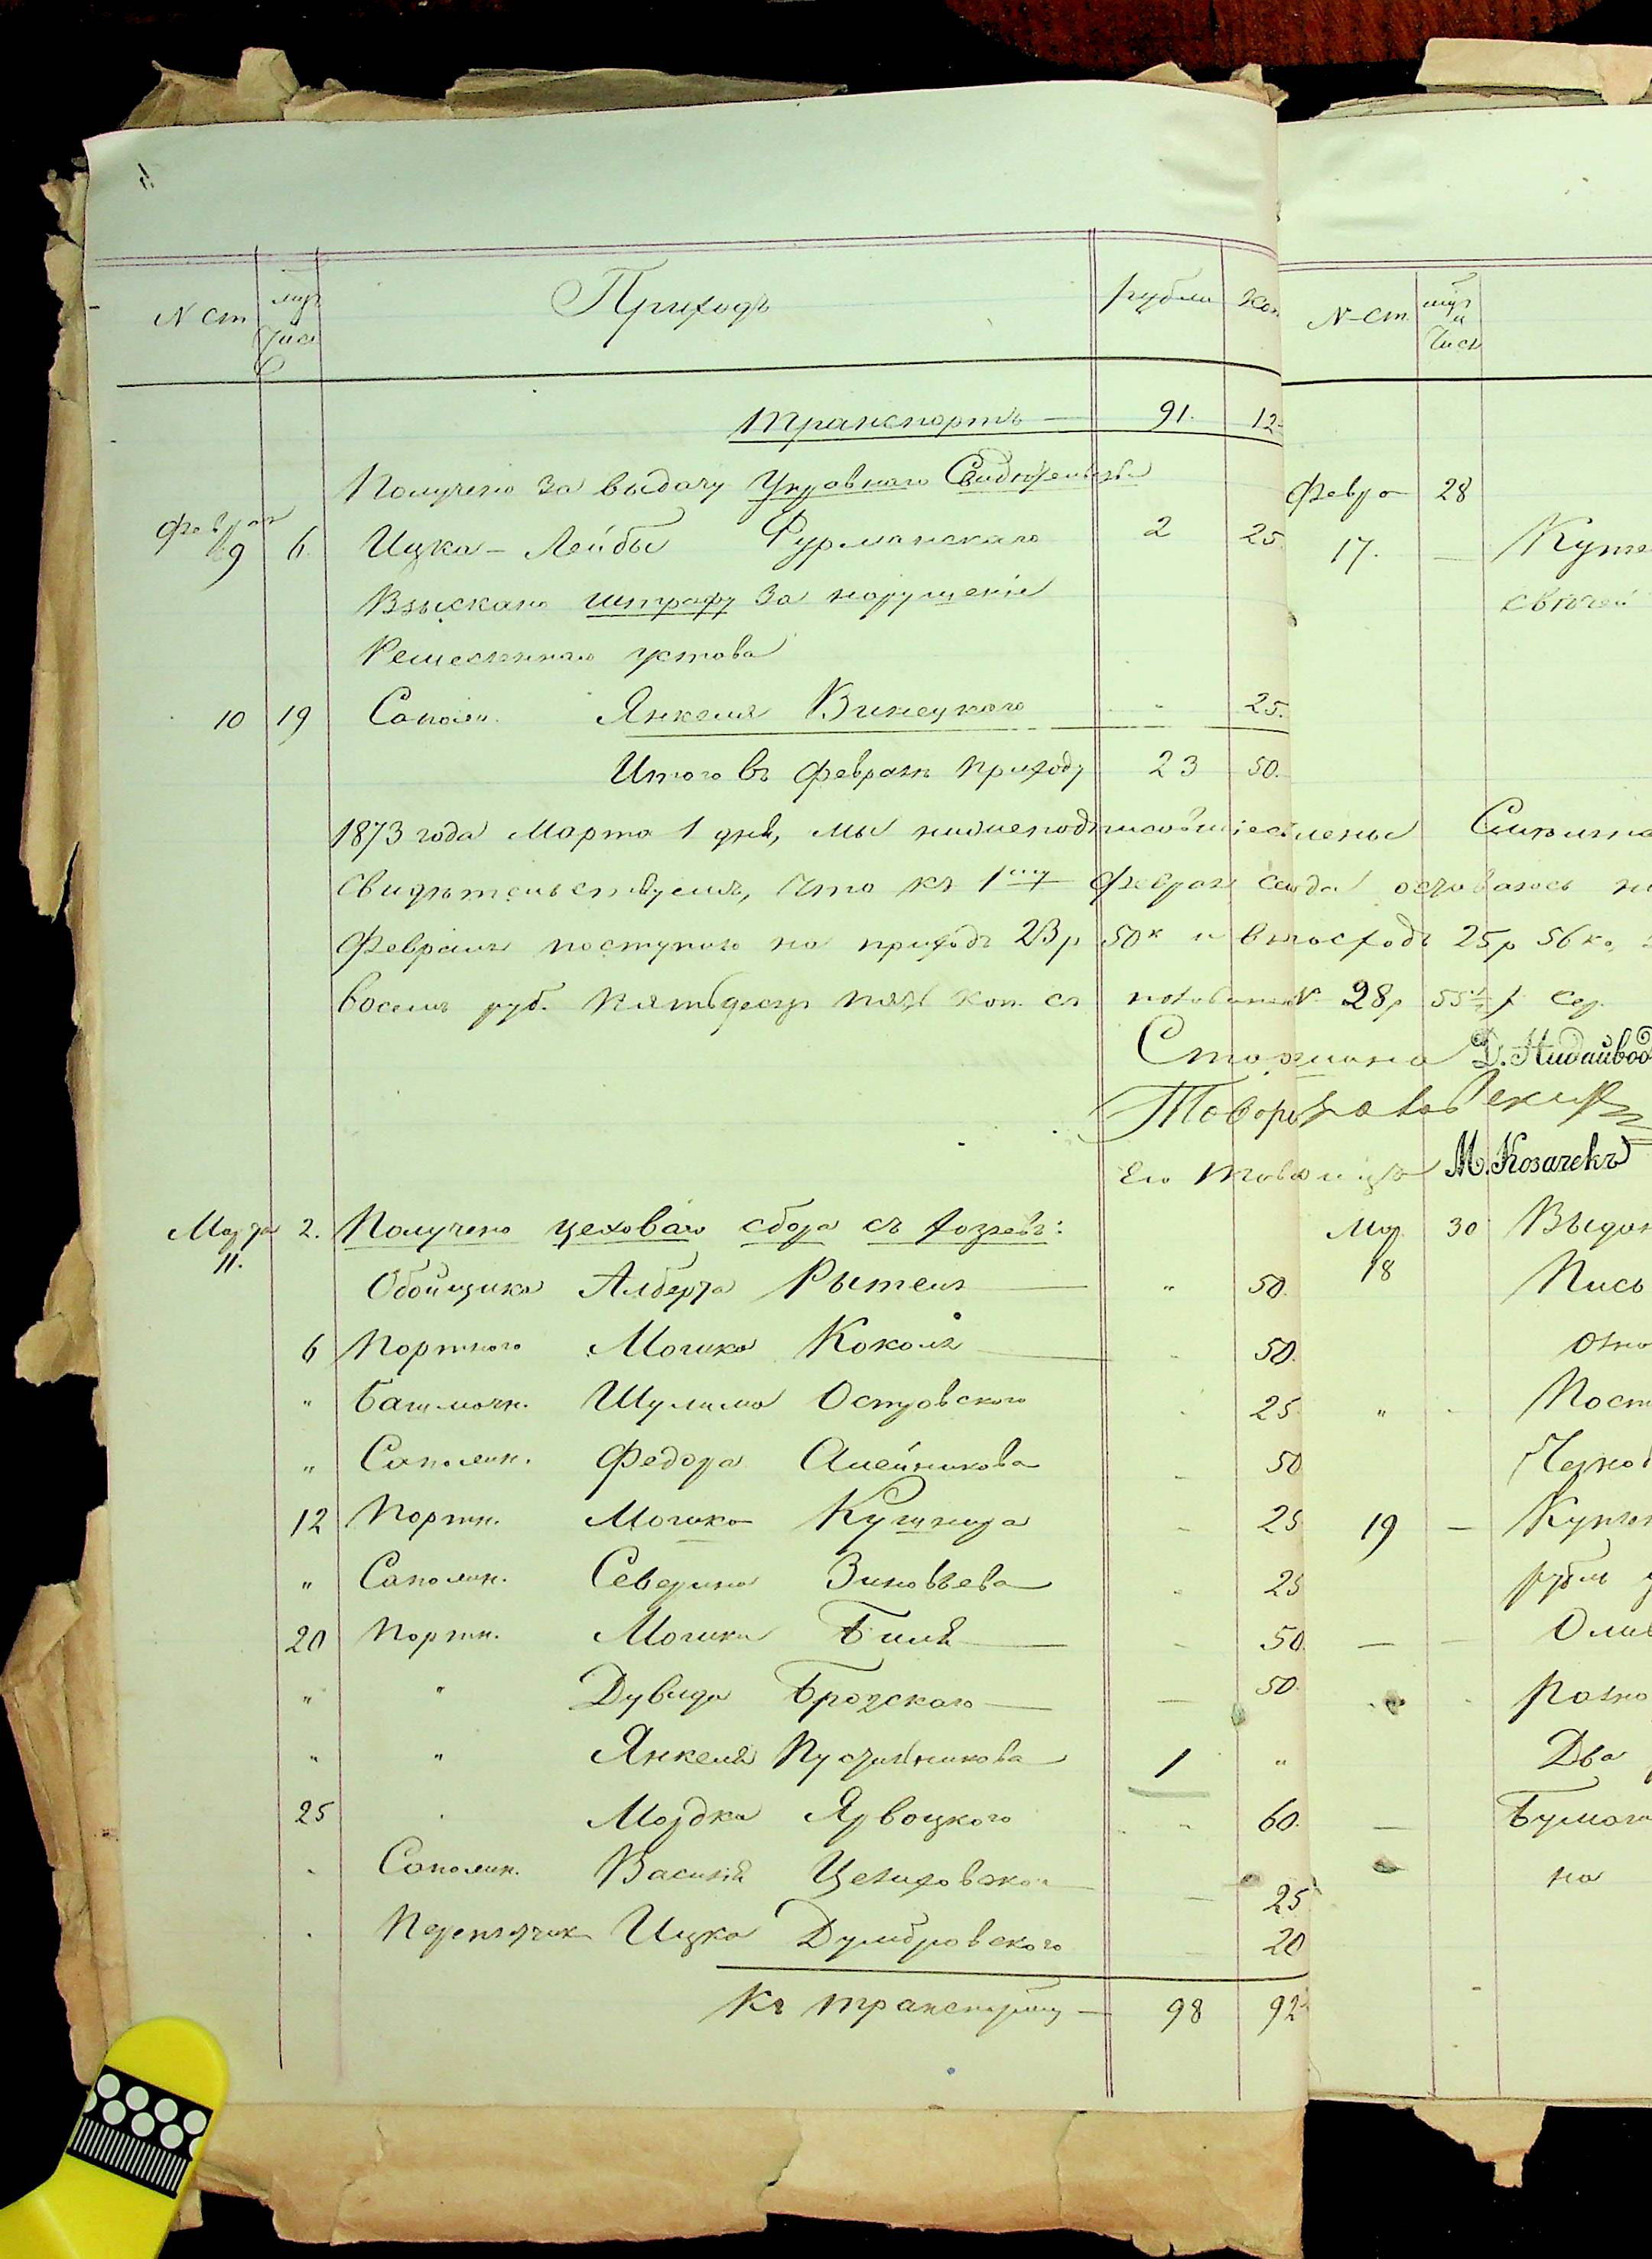 N ст Чис Приходъ рубли Коп
Транспортъ — 91. 12
Получено за выдачу Управнаго Свидѣтельства
Феврал 9 6. Ицка-Лейбы Фурманскаго 2 25.
Взыскано штрафу За нарушеніе
Ремесленнаго устава
10 19 Сапожн. Янкеля Винецкаго " 25.
Итого въ Февралѣ приходу 23 50.
1873 года Марта 1 дня, мы нижеподписавшіеся члены
свидѣтельствуемъ, Что къ 1му Февраля сего года оставалось
Февралѣ поступило на приходъ 23 р 50 к и въ расходъ 25 р 56 ко,
восемь руб. Пятьдесят пять коп. съ половиной 28 р 55 ½ к сер.
Старшина Д. Нидайвод
Товарищ
Его товарищъ М. Козачекъ
Марта 2. Получено цеховаго сбора съ хозяевъ:
11. Обойщика Алберта Рытель — " 50.
6 Портного Мошка Коколя — 50.
" Башмачн. Шулима Островскаго 25
" Сапожн. Федора Алейникова 50
12 Портн. Мошка Кушнира 25
" Сапожн. Северина Зиновьева 25
20 Портн. Мошки Биля — 50.
" " Дувида Бродскаго — 50.
" " Янкеля Пустильникова 1 "
25 Мордка Ярвоцкого 60.
Сапожн. Василій 25
Переплетчик Ицка Думбровскаго 20
Къ транспорту — 98 92
N-ст. Числ
Февра 28
17. — Купле
свѣчей
Мар. 30 Выдан
18 Пись
Пост
19 — Куплен
рубль
Олив
Разно
Два
Бумаги
на